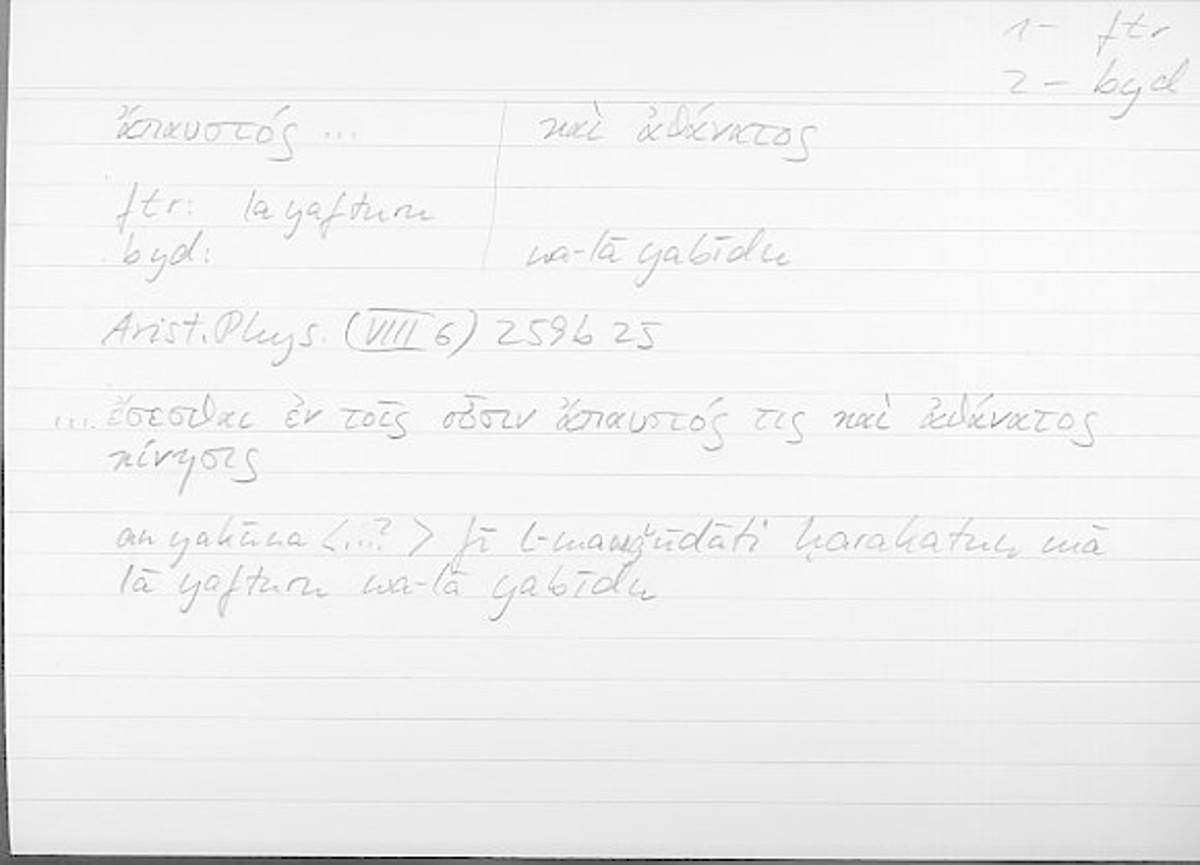 1- ftr
2- byd
ἄπαυστός ... καὶ ἀθάνατος
ftr: la yafturu
byd: wa-lā yabīdu
Arist. Phys. (VIII 6) 259b 25
... ἔσεσθαι ἐν τοῖς οὖσιν ἄπαυστός τις καὶ ἀθάνατος
κίνησις
an yakūna <...?> fī l-mawǧūdāti ḥarakatun mā
lā yafturu wa-lā yabīdu